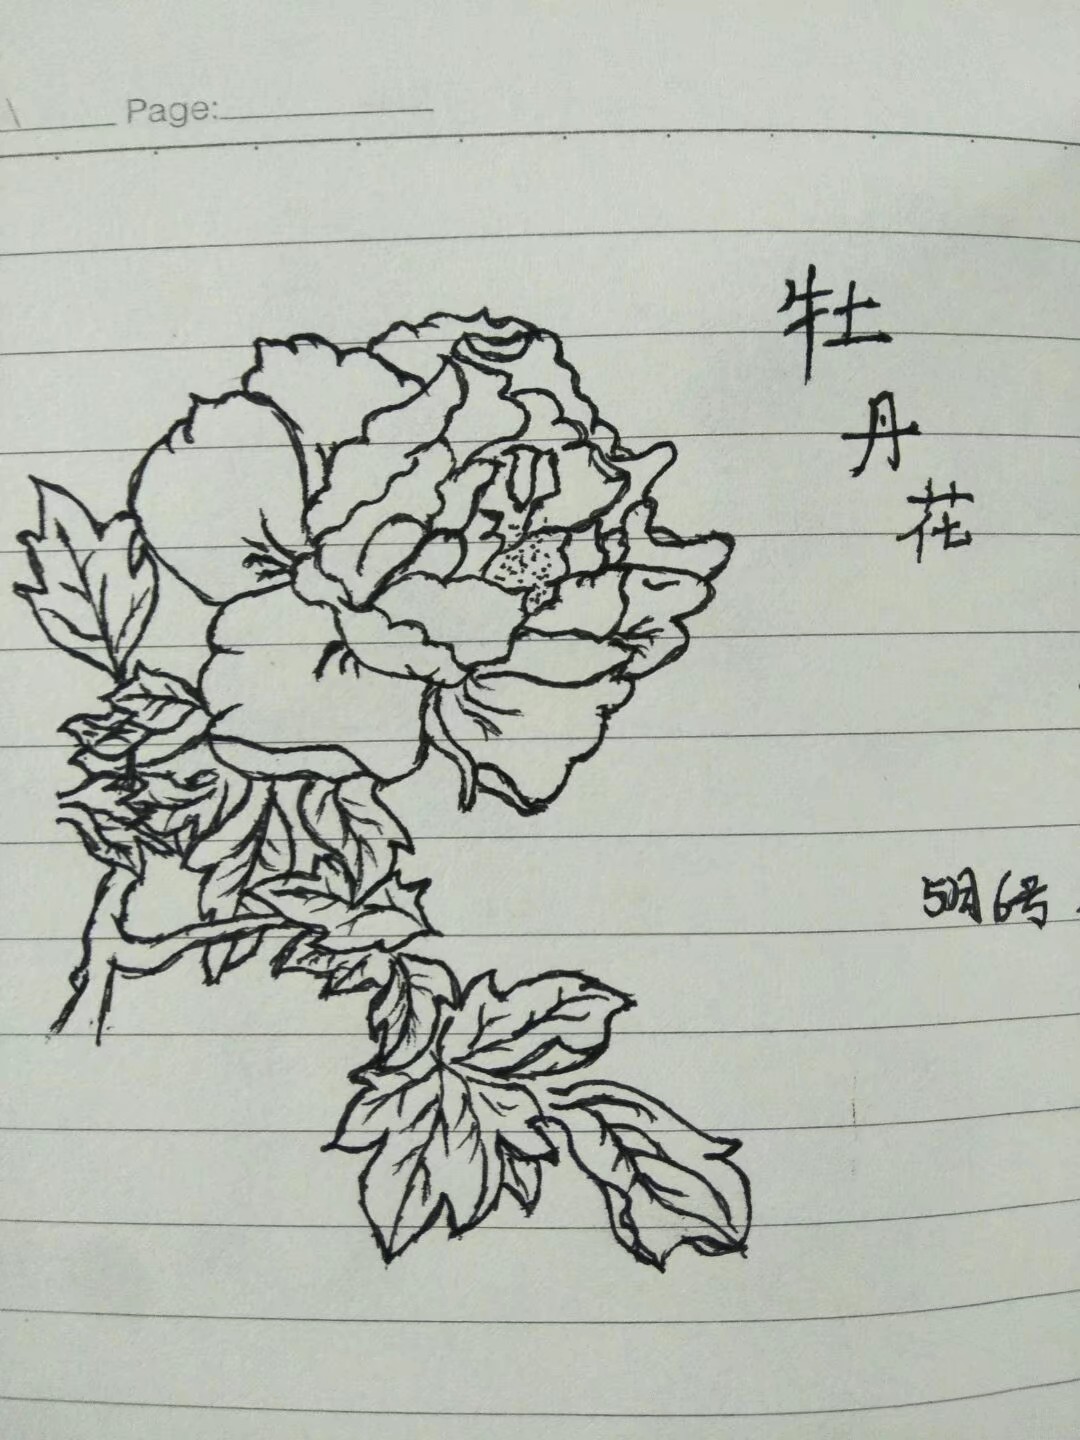 Page:
牡
丹
花
5月6号